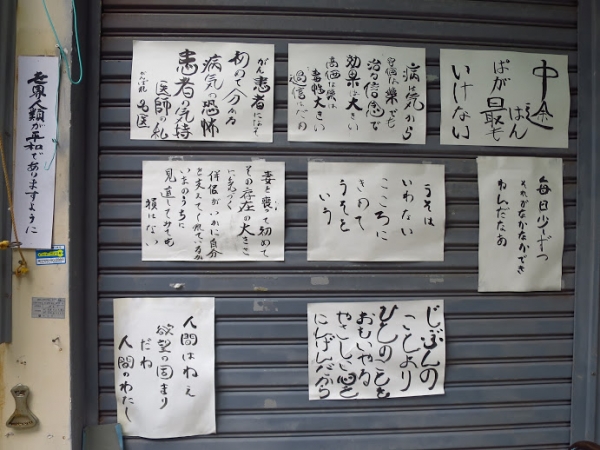 中途はん
ぱが最も
いけない
病気から
治る信念で
効果は大きい
高価な薬は
毒性大きい
過信はだめ
がん患者になって
初めて分かる
病気の恐怖
患者の気持
医師の礼
がんばれ名医
世界人類が平和でありますように
毎日少しずつ
それがなかなかでき
ねんだなあ
うそは
いわない
こころに
きめて
うそを
いう
妻を喪って初めて
その存在の大きさ
に気づく
伴侶がいかに自分
を支えてくれているか
いまのうちに
見直してみても
損はない
じぶんの
ことより
ひとのことを
おもいやる
やさしい心を
にんげんだから
人間はねえ
欲望の固まり
だね
人間のわたし